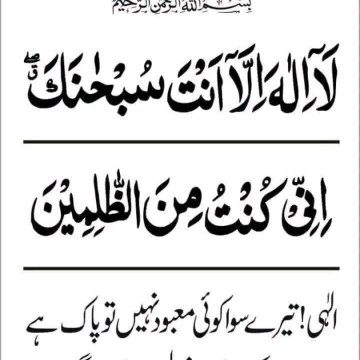 بسم الله الرحمن الرحيم
لَآ اِلٰهَ اِلَّآ اَنْتَ سُبْحٰنَكَ ۖۗ
اِنِّیْ كُنْتُ مِنَ الظّٰلِمِیْنَ
الٰہی! تیرے سوا کوئی معبود نہیں تو پاک ہے